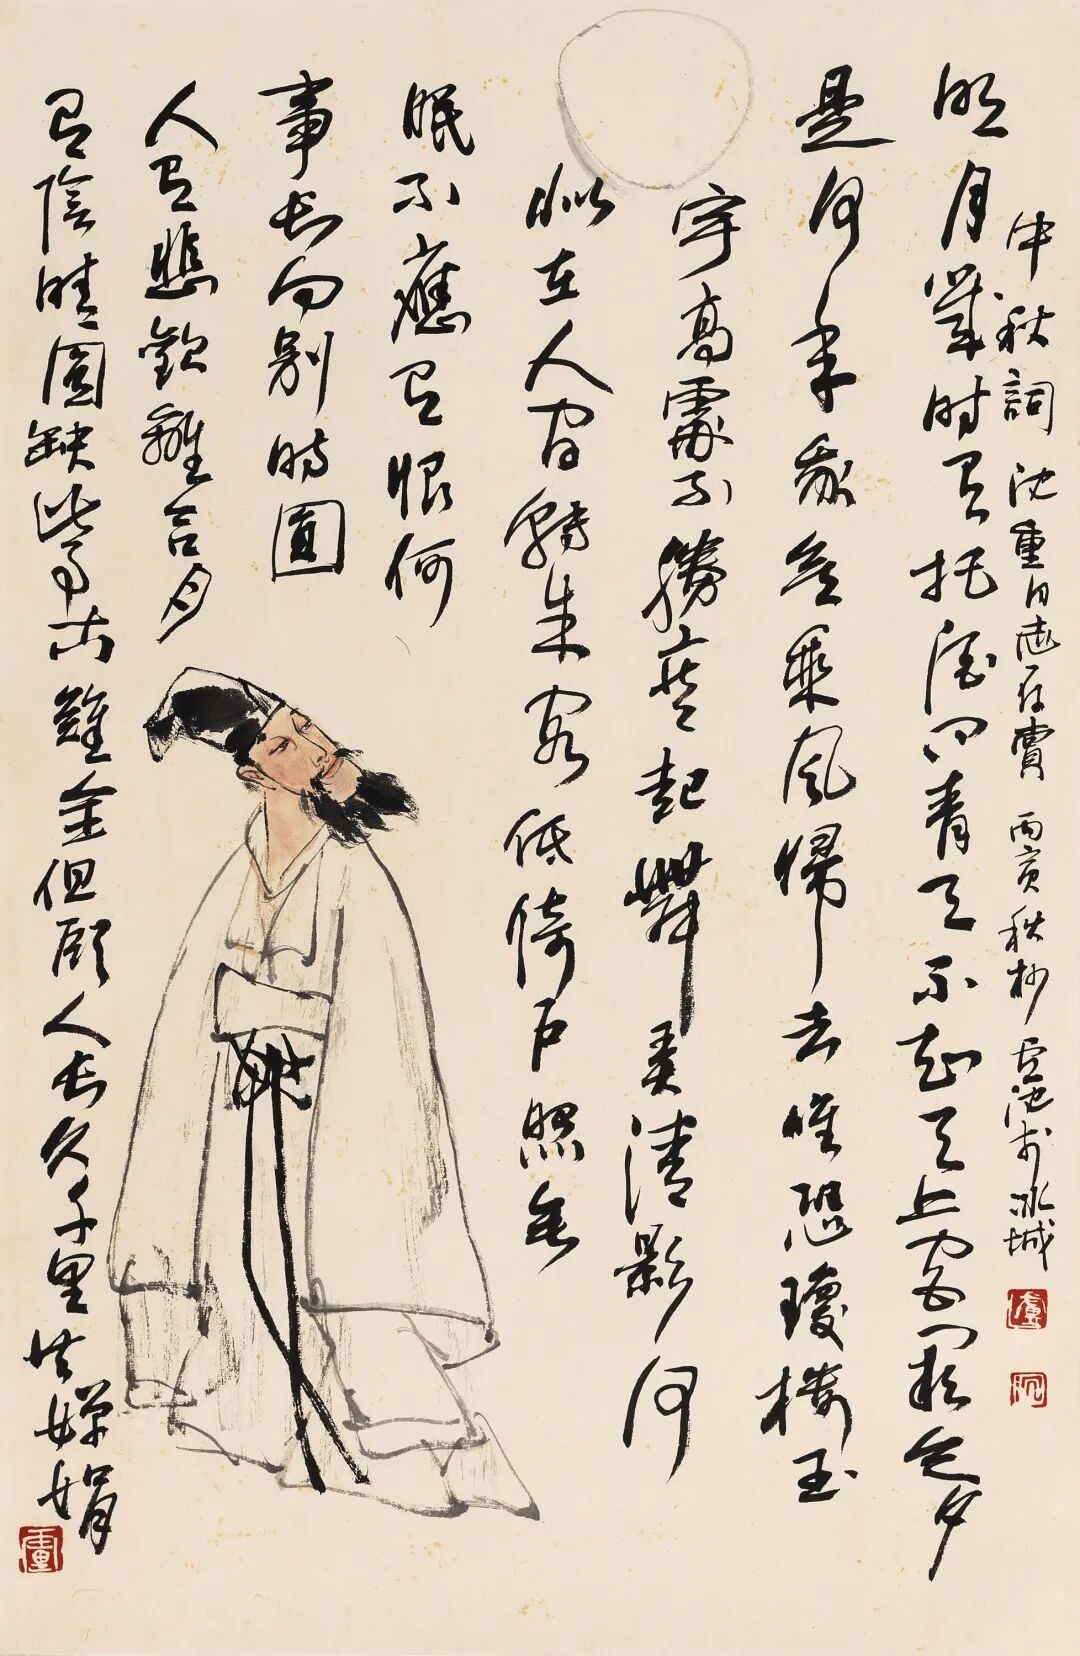 中秋詞 沈重同志存賞 丙寅秋杪 盧沉於冰城
明月幾时有把酒问青天不知天上宫阙今夕
是何年我欲乘风歸去唯恐瓊樓玉
宇高處不勝寒起舞弄清影何
似在人间轉朱阁低綺户照无
眠不應有恨何
事长向别時圓
人有悲歡離合月
有陰晴圓缺此事古難全但願人长久千里共嬋娟